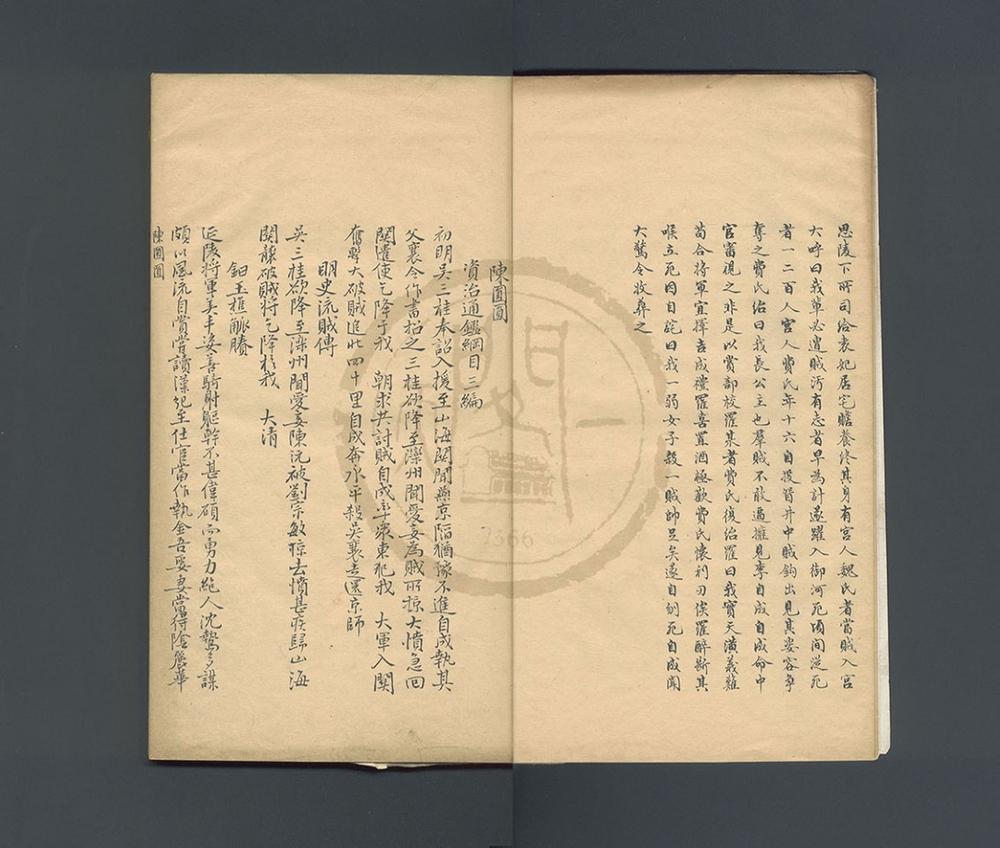 思陵下所司给袁妃居宅瞻養终其身有宮人魏氏者當賊入宮
大呼曰我輩必遭賊汚有志者早為計遂躍入御河死頃间從死
者一二百人宮人費氏年十六自投眢井中賊鈎出見其姿容争
奪之費氏绐曰我長公主也羣賊不敢逼擁見李自成自成命中
官審視之非是以賞部校羅某者費氏復绐羅曰我實天潢義難
苟合将軍宜擇吉成禮羅喜置酒極歡費氏懐利刃俟羅醉斷其
喉立死因自詫曰我一弱女子殺一賊帥足矣遂自刎死自成聞
大驚令收葬之
陳圎圎
資治通鑑綱目三編
初明吴三桂奉詔入援至山海関聞燕京陷猶豫不進自成執其
父襄令作書招之三桂欲降至灤州聞愛妾為賊所掠大憤急回
関遣使乞降于我 朝求共討賊自成率衆東犯我 大軍入関
奮擊大破賊追北四十里自成奔永平殺吴襄走還京師
明史流賊傳
吴三桂欲降至灤州聞愛妾陳沅被劉宗敏掠去憤甚疾歸山海
関襲破賊将乞降於我 大清
鈕玉樵觚賸
延陵将軍美丰姿善騎射軀幹不甚偉碩而勇力絶人沈鷙多謀
頗以風流自賞嘗讀漢紀至仕宦當作執金吾娶妻當得陰麗華
陳圎圎
7366